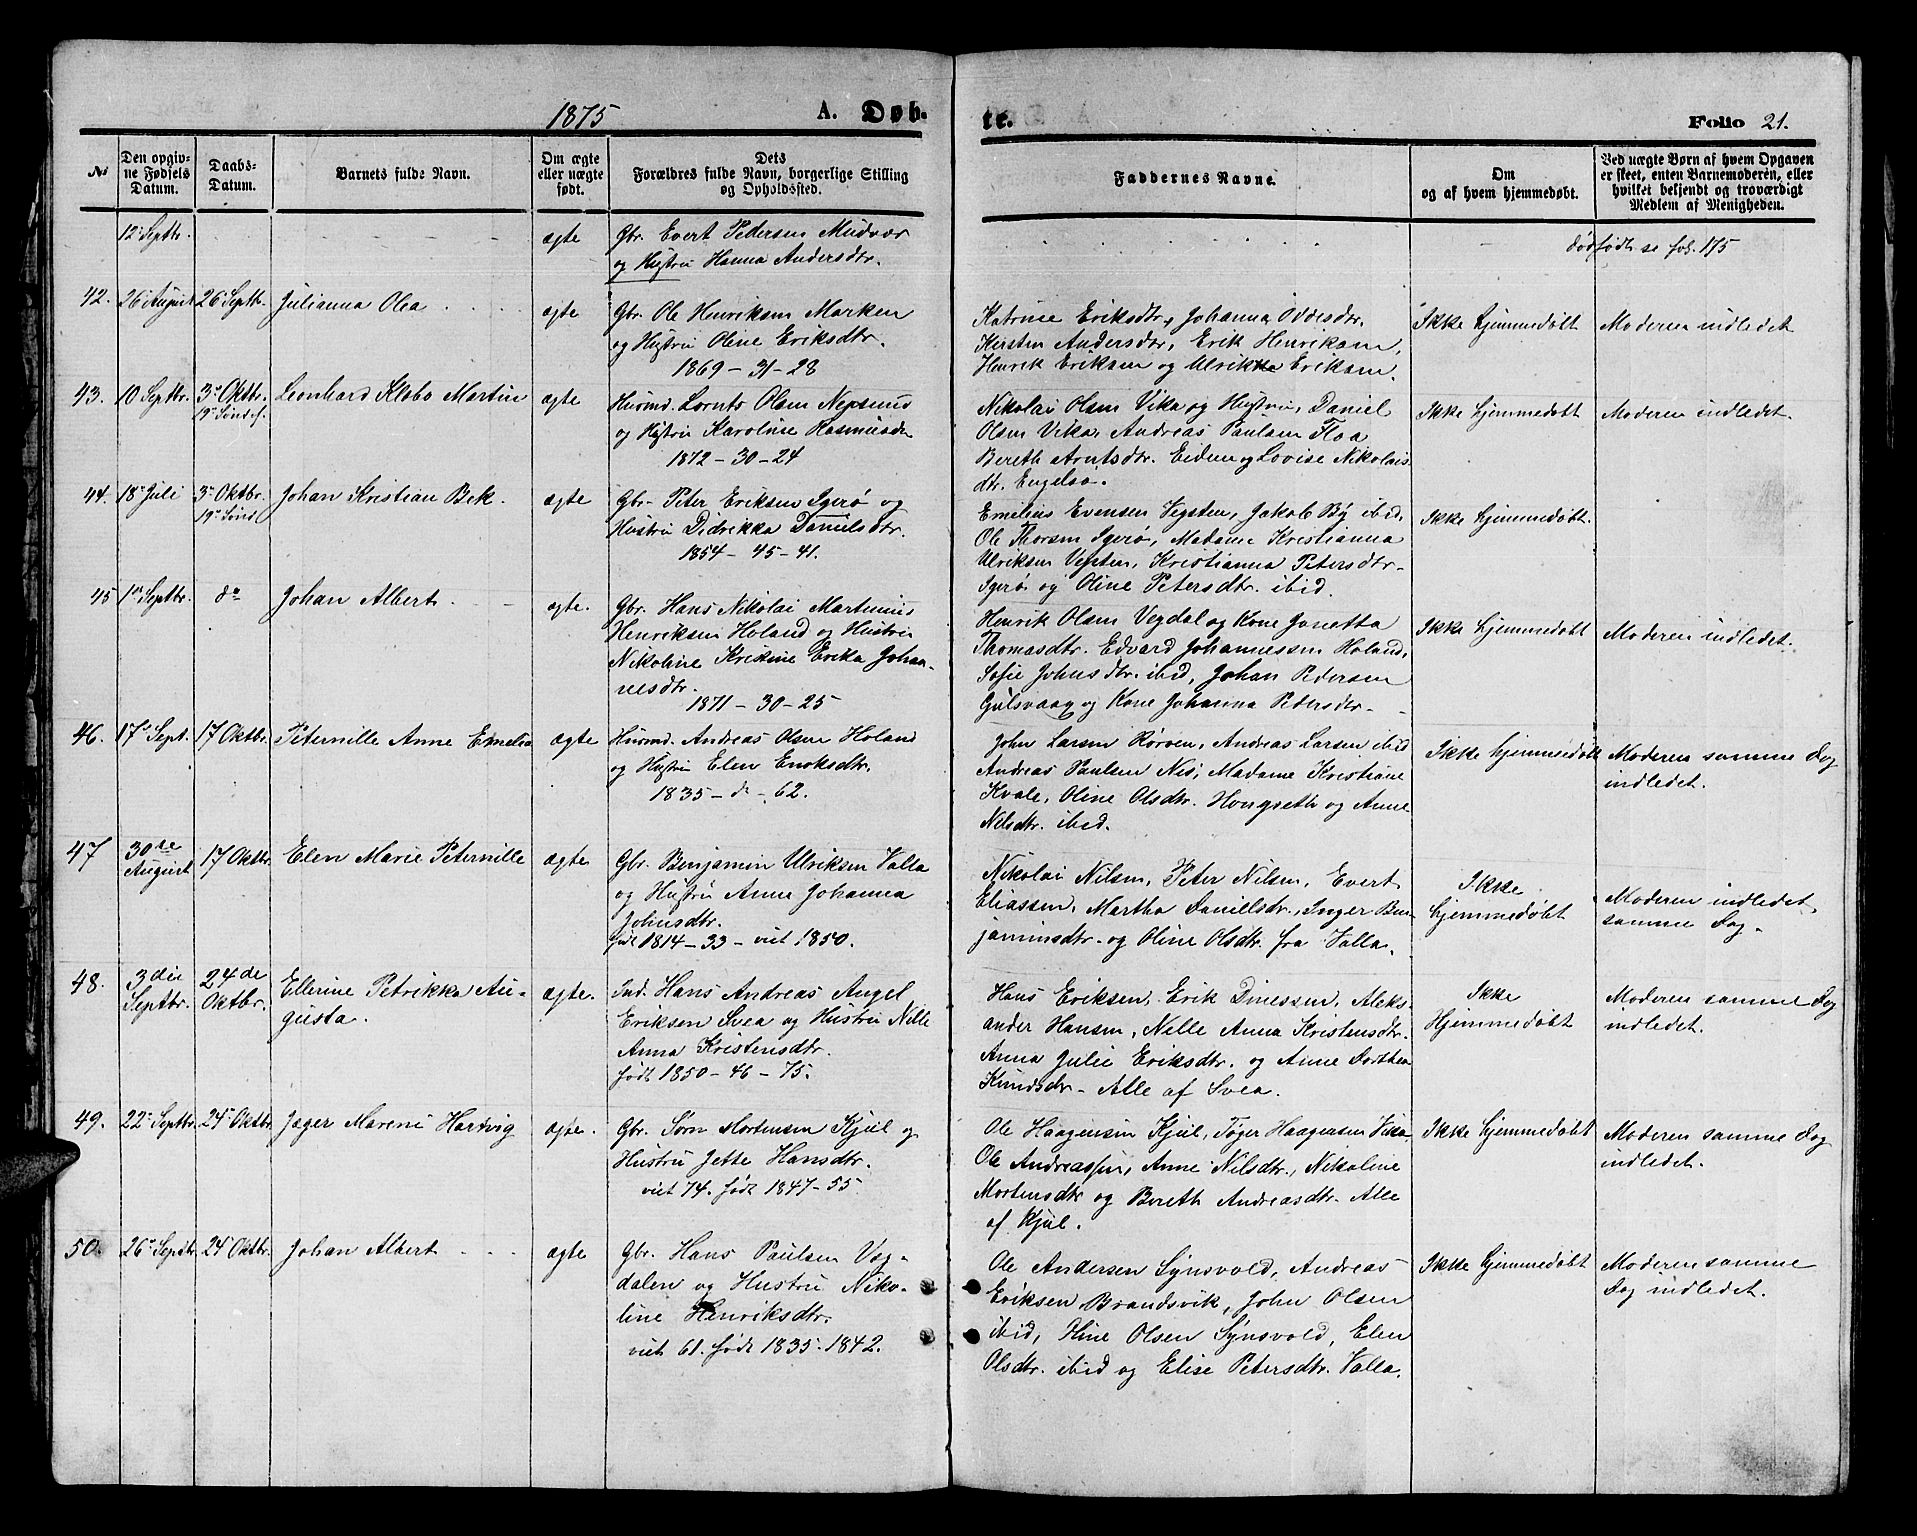 1875
A. Døb-
te.
Folio 21.
No
Den opgiv-
ne Fødsels
Datum.
Daabs-
Datum.
Barnets fulde Navn.
Om ægte
eller uægte
født.
Dets
Forældres fulde Navn, borgerlige Stilling
og Opholdssted.
Faddernes Navne.
Om
og af hvem hjemmedøbt.
Ved uægte Børn af hvem Opgaven
er skeet, enten Barnemoderen, eller
hvilket bekjendt og troværdigt
Medlem af Menigheden.
12 Septbr.
ægte
Gbr. Evert Pedersen Mudvær
og Hustru Hanna Andersdtr.
dødfødt se fol. 175
42.
26 August
26 Septbr.
Julianna Olea
ægte
Gbr. Ole Henriksen Marken
og Hustru Oline Eriksdtr.
1869 - 31 - 28
Katrine Eriksdtr, Johanna
Kirsten Andersdtr, Erik Henriksen,
Henrik Eriksen og Ulrikke Eriksen.
Ikke hjemmedøbt
Moderen indledet
43.
10 Septbr.
3 Oktbr.
19 Sønd ef.
Leonhard Klebo Martin
ægte
Husmd. Lornts Olsen Nepsund
og Hustru Karoline Rasmusdr
1872 - 30 - 24
Nikolai Olsen Vika og Hustru, Daniel
Olsen Vika, Andreas Paulsen Floa
Bereth Arntsdtr. Eidem og Lovise Nikolais
dtr. Engelsø.
Ikke hjemmedøbt
Moderen indledet.
44.
18 Juli
3 Oktbr.
19 Sønd.
Johan Kristian Bek.
ægte
Gbr. Peter Eriksen Igerø og
Hustru Didrikka Danielsdtr.
1854 - 45 - 41.
Emelius Evensen Vegsten, Jakob By ibid,
Ole Thorsen Igerø, Madame Kristianna
Ulriksen Vegsten, Kristianna Petersdtr
Igerø og Oline Petersdtr. ibid.
Ikke hjemmedøbt.
45
1 Septbr.
do
Johan Albert
ægte.
Gbr. Hans Nikolai Martinus
Henriksen Holand og Hustru
Nikoline Kristine Erika Johan-
nesdtr.
1871 - 30 - 25
Henrik Olsen Vegdal og Kone Jonetta
Thomasdtr. Edvard Johannessen Holand,
Sofie Johnsdtr. ibid, Johan Pedersen
Gulsvaag og Kone Johanna Pedersdr
Ikke hjemmedøbt
Moderen indledet.
46.
17 Sept.
17 Oktbr.
Peternille Anne Emelia
ægte
Husmd. Andreas Olsen Holand
og Hustru Elen Enoksdtr.
1835 - d - 62.
John Larsen Rørøen, Andreas Larsen ibid
Andreas Paulsen Nis, Madame Kristiane
Kvale, Oline Olsdtr. Hongseth og Anne
Nilsdtr. ibid.
Ikke hjemmedøbt
Moderen samme Dag
indledet.
47
30te
August
17 Oktbr.
Elen Marie Peternille
ægte
Gbr. Benjamin Ulriksen Valla
og Hustru Anne Johanna
Johnsdtr.
født 1814 - 33 - viet 1850.
Nikolai Nilsen, Peter Nilsen, Evert
Eliassen, Martha Danielsdr, Inger Ben-
jaminsdtr. og Oline Olsdtr. fra Valla.
Ikke
hjemmedøbt
Moderen indledet,
samme Dag.
48.
3die
Septbr.
24de
Oktbr.
Ellerine Petrikka Au-
gusta.
ægte.
Ind. Hans Andreas Angel
Eriksen Svea og Hustru Nelle
Anna Kristensdtr.
født 1850 - 46 - 75.
Hans Eriksen. Erik Dinessen, Aleks-
ander Hansen, Nelle Anna Kristensdtr.
Anna Julie Eriksdtr. og Anne Dorthea
Knudsdr - Alle af Svea.
Ikke
Hjemmedøbt
Moderen samme Dag
indledet.
49.
22 Septbr.
24 Oktbr.
Jæger Mareni Hartvig
ægte.
Gbr. Sørn Mortensen Kjul og
Hustru Jette Hansdtr.
viet 74. født 1847 - 55.
Ole Haagensen Kjul, Tøger Haagensen Vika
Ole Andreassen, Anne Nilsdtr, Nikoline
Mortensdtr og Bereth Andreasdtr. Alle
af Kjul.
Ikke hjemmedøbt
Moderen samme Dag
indledet.
50.
26 Septbr.
24 Oktbr.
Johan Albert
ægte
Gbr. Hans Paulsen Veg-
dalen og Hustru Niko-
line Henriksdtr.
viet 61. født 1835. 1842.
Ole Andersen Synsvold, Andreas
Eriksen Brandsvik, John Olsen
ibid, Oline Olsen Synsvold, Elen
Olsdtr. ibid og Elise Petersdtr. Valla.
Ikke hjemmedøbt
Moderen samme
Dag indledet.